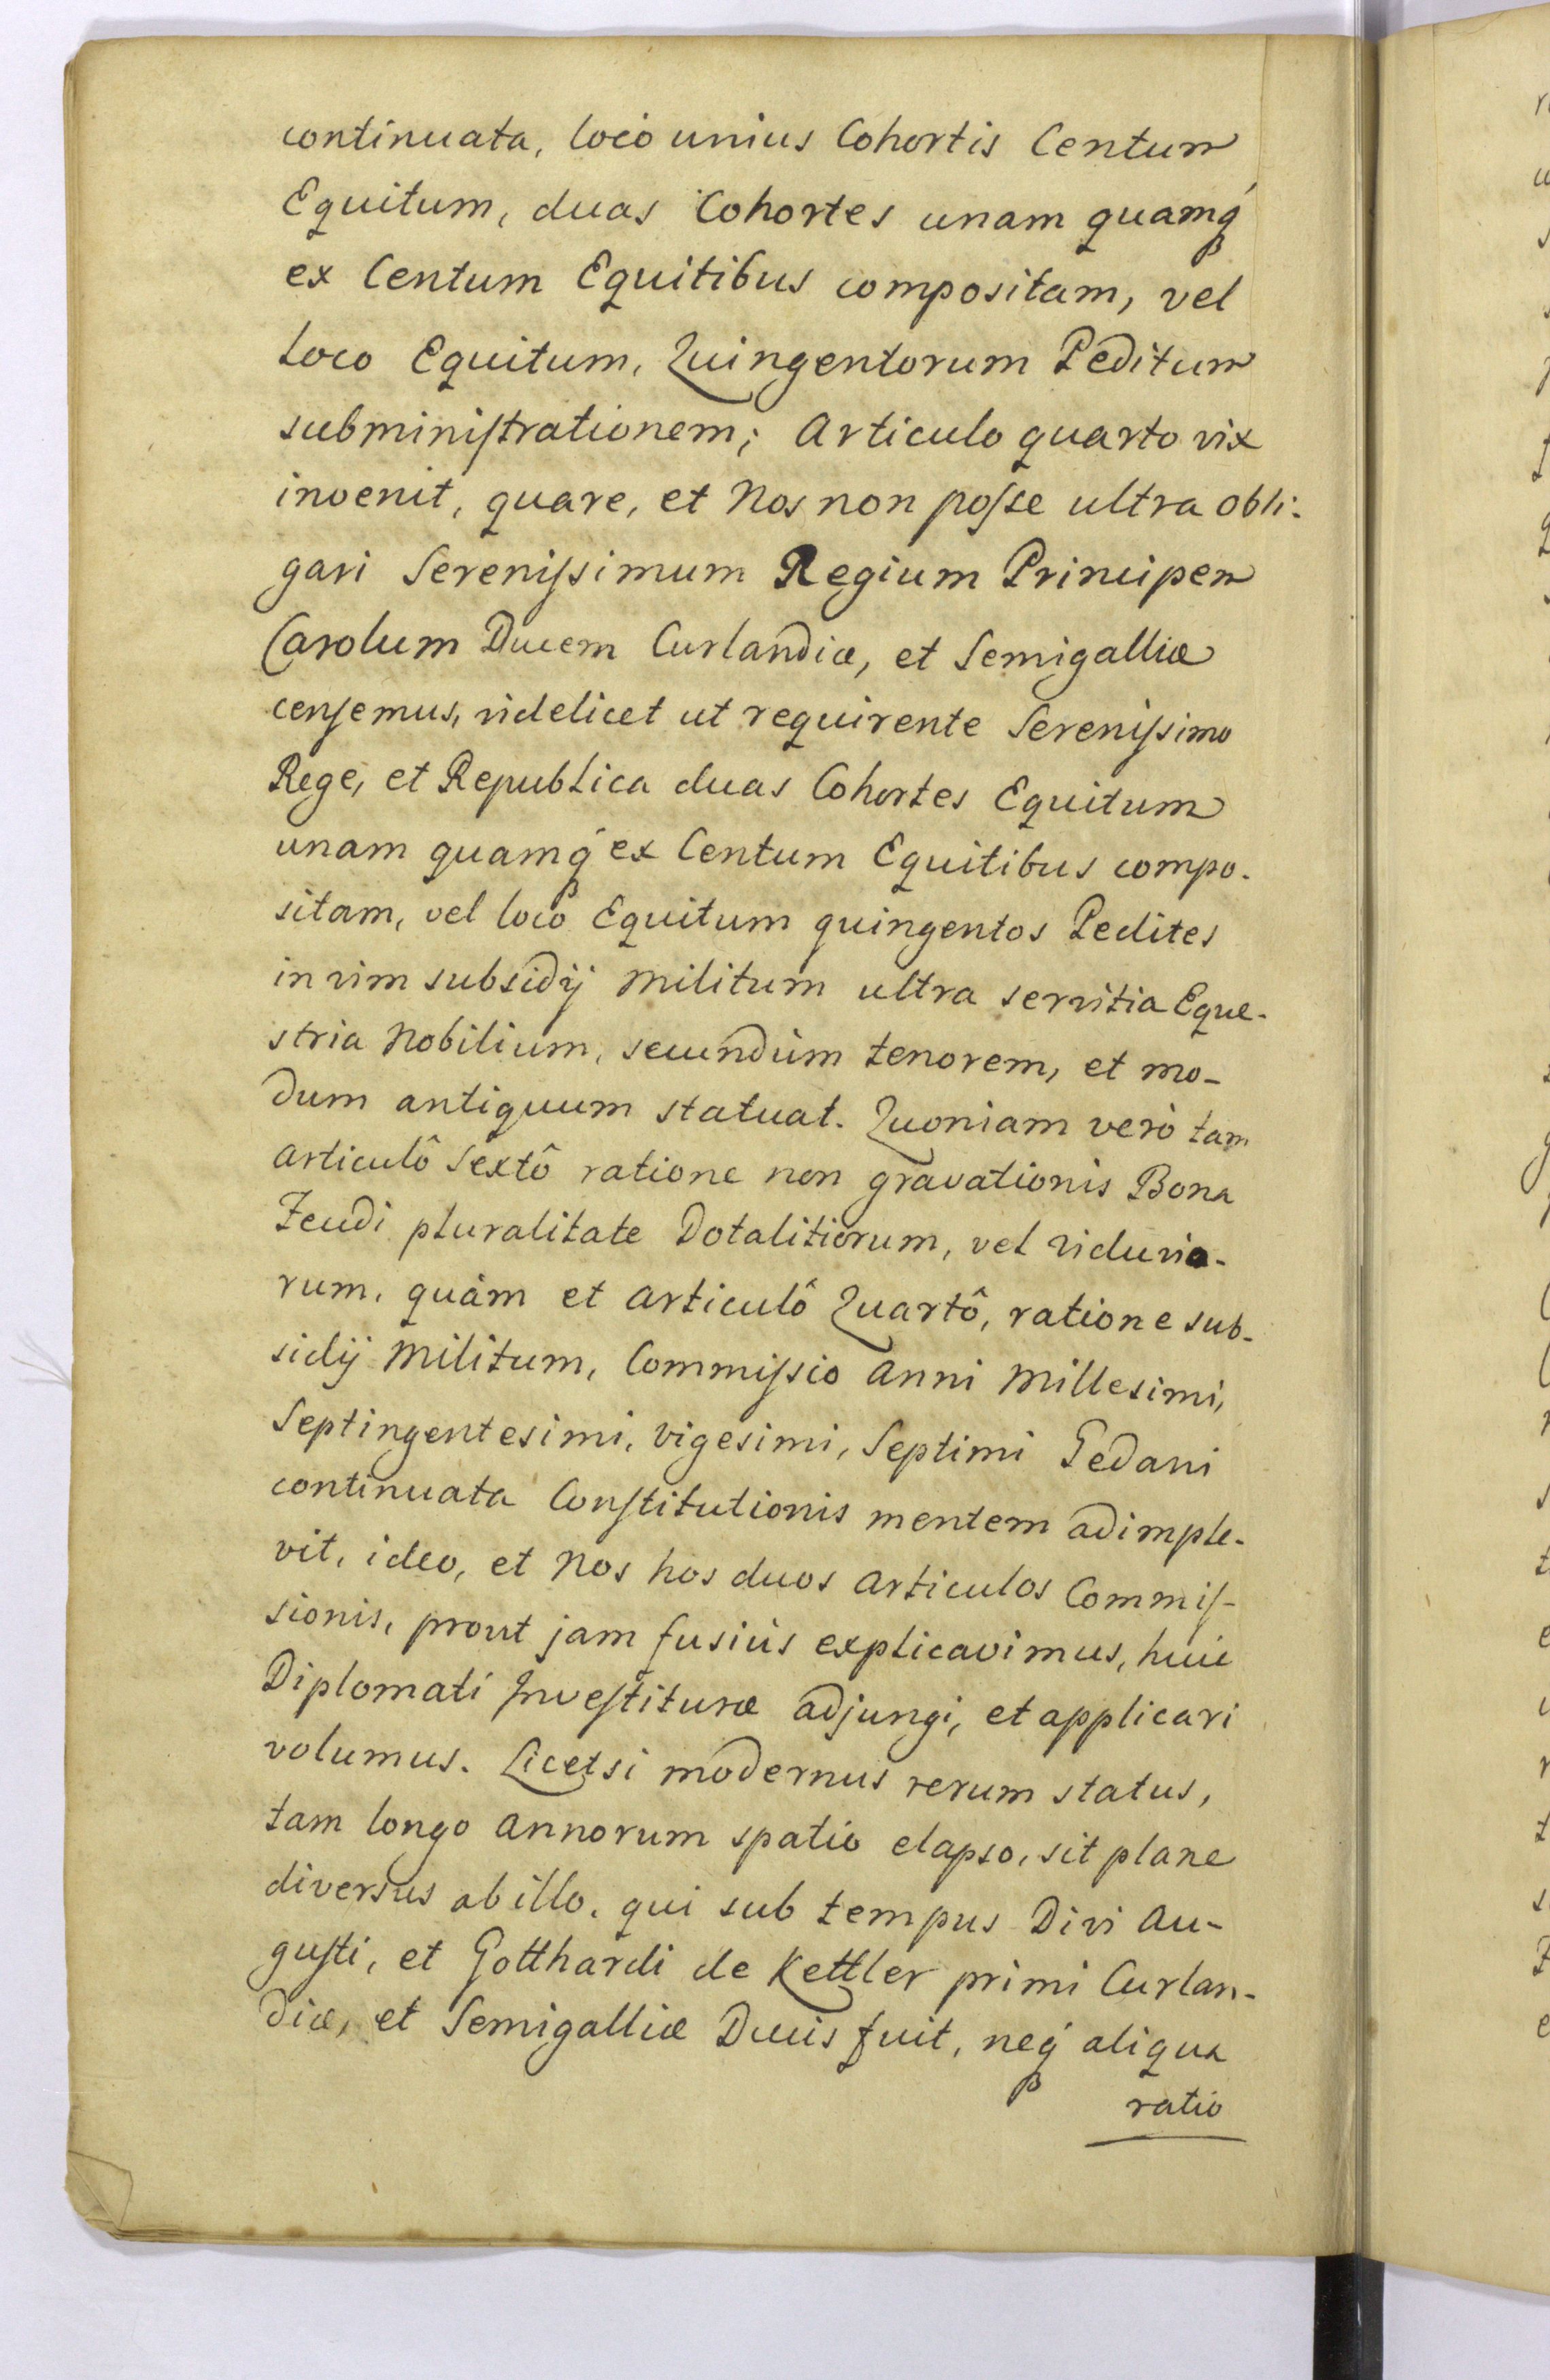 continuata, loco unius Cohortis Centum
Equitum, duas Cohortes unam quamq́
ex Centum Equitibus compositam, vel
Loco Equitum, Quingentorum Peditum
subminiſtrationem; Articulo quarto vix
invenit, quare, et Nos non poſse ultra obli-
gari Sereniſsimum Regium Principem
Carolum Ducem Curlandiæ, et Semigalliæ
cenſemus, videlicet ut requirente Sereniſsimo
Rege, et Republica duas Cohortes Equitum
unam quamq́ ex Centum Equitibus compo-
sitam, vel loco Equitum quingentos Pedites
in vim subsidij Militum ultra servitia Eque-
stria Nobilium, secundùm tenorem, et mo-
dum antiquum statuat. Quoniam verò tam
Articulô Sextô ratione non gravationis Bona
Feudi pluralitate Dotalitiorum, vel viduvia-
rum, quàm et Articulô Quartô, ratione sub-
sidij Militum, Commiſsio Anni Millesimi,
Septingentesimi, Vigesimi, Septimi Gedani
continuata Conſtitutionis mentem adimple-
vit, ideo, et Nos hos duos Articulos Commiſ-
sionis, prout jam fusiùs explicavimus, huic
Diplomati Inveſtituræ adjungi, et applicari
volumus. Licetsi modernus rerum status,
tam longo Annorum spatio elapso, sit plane
diversus ab illo, qui sub tempus Divi Au-
guſti, et Gotthardi de Kettler primi Curlan-
diæ, et Semigalliæ Ducis fuit, neq́ aliqua
ratio